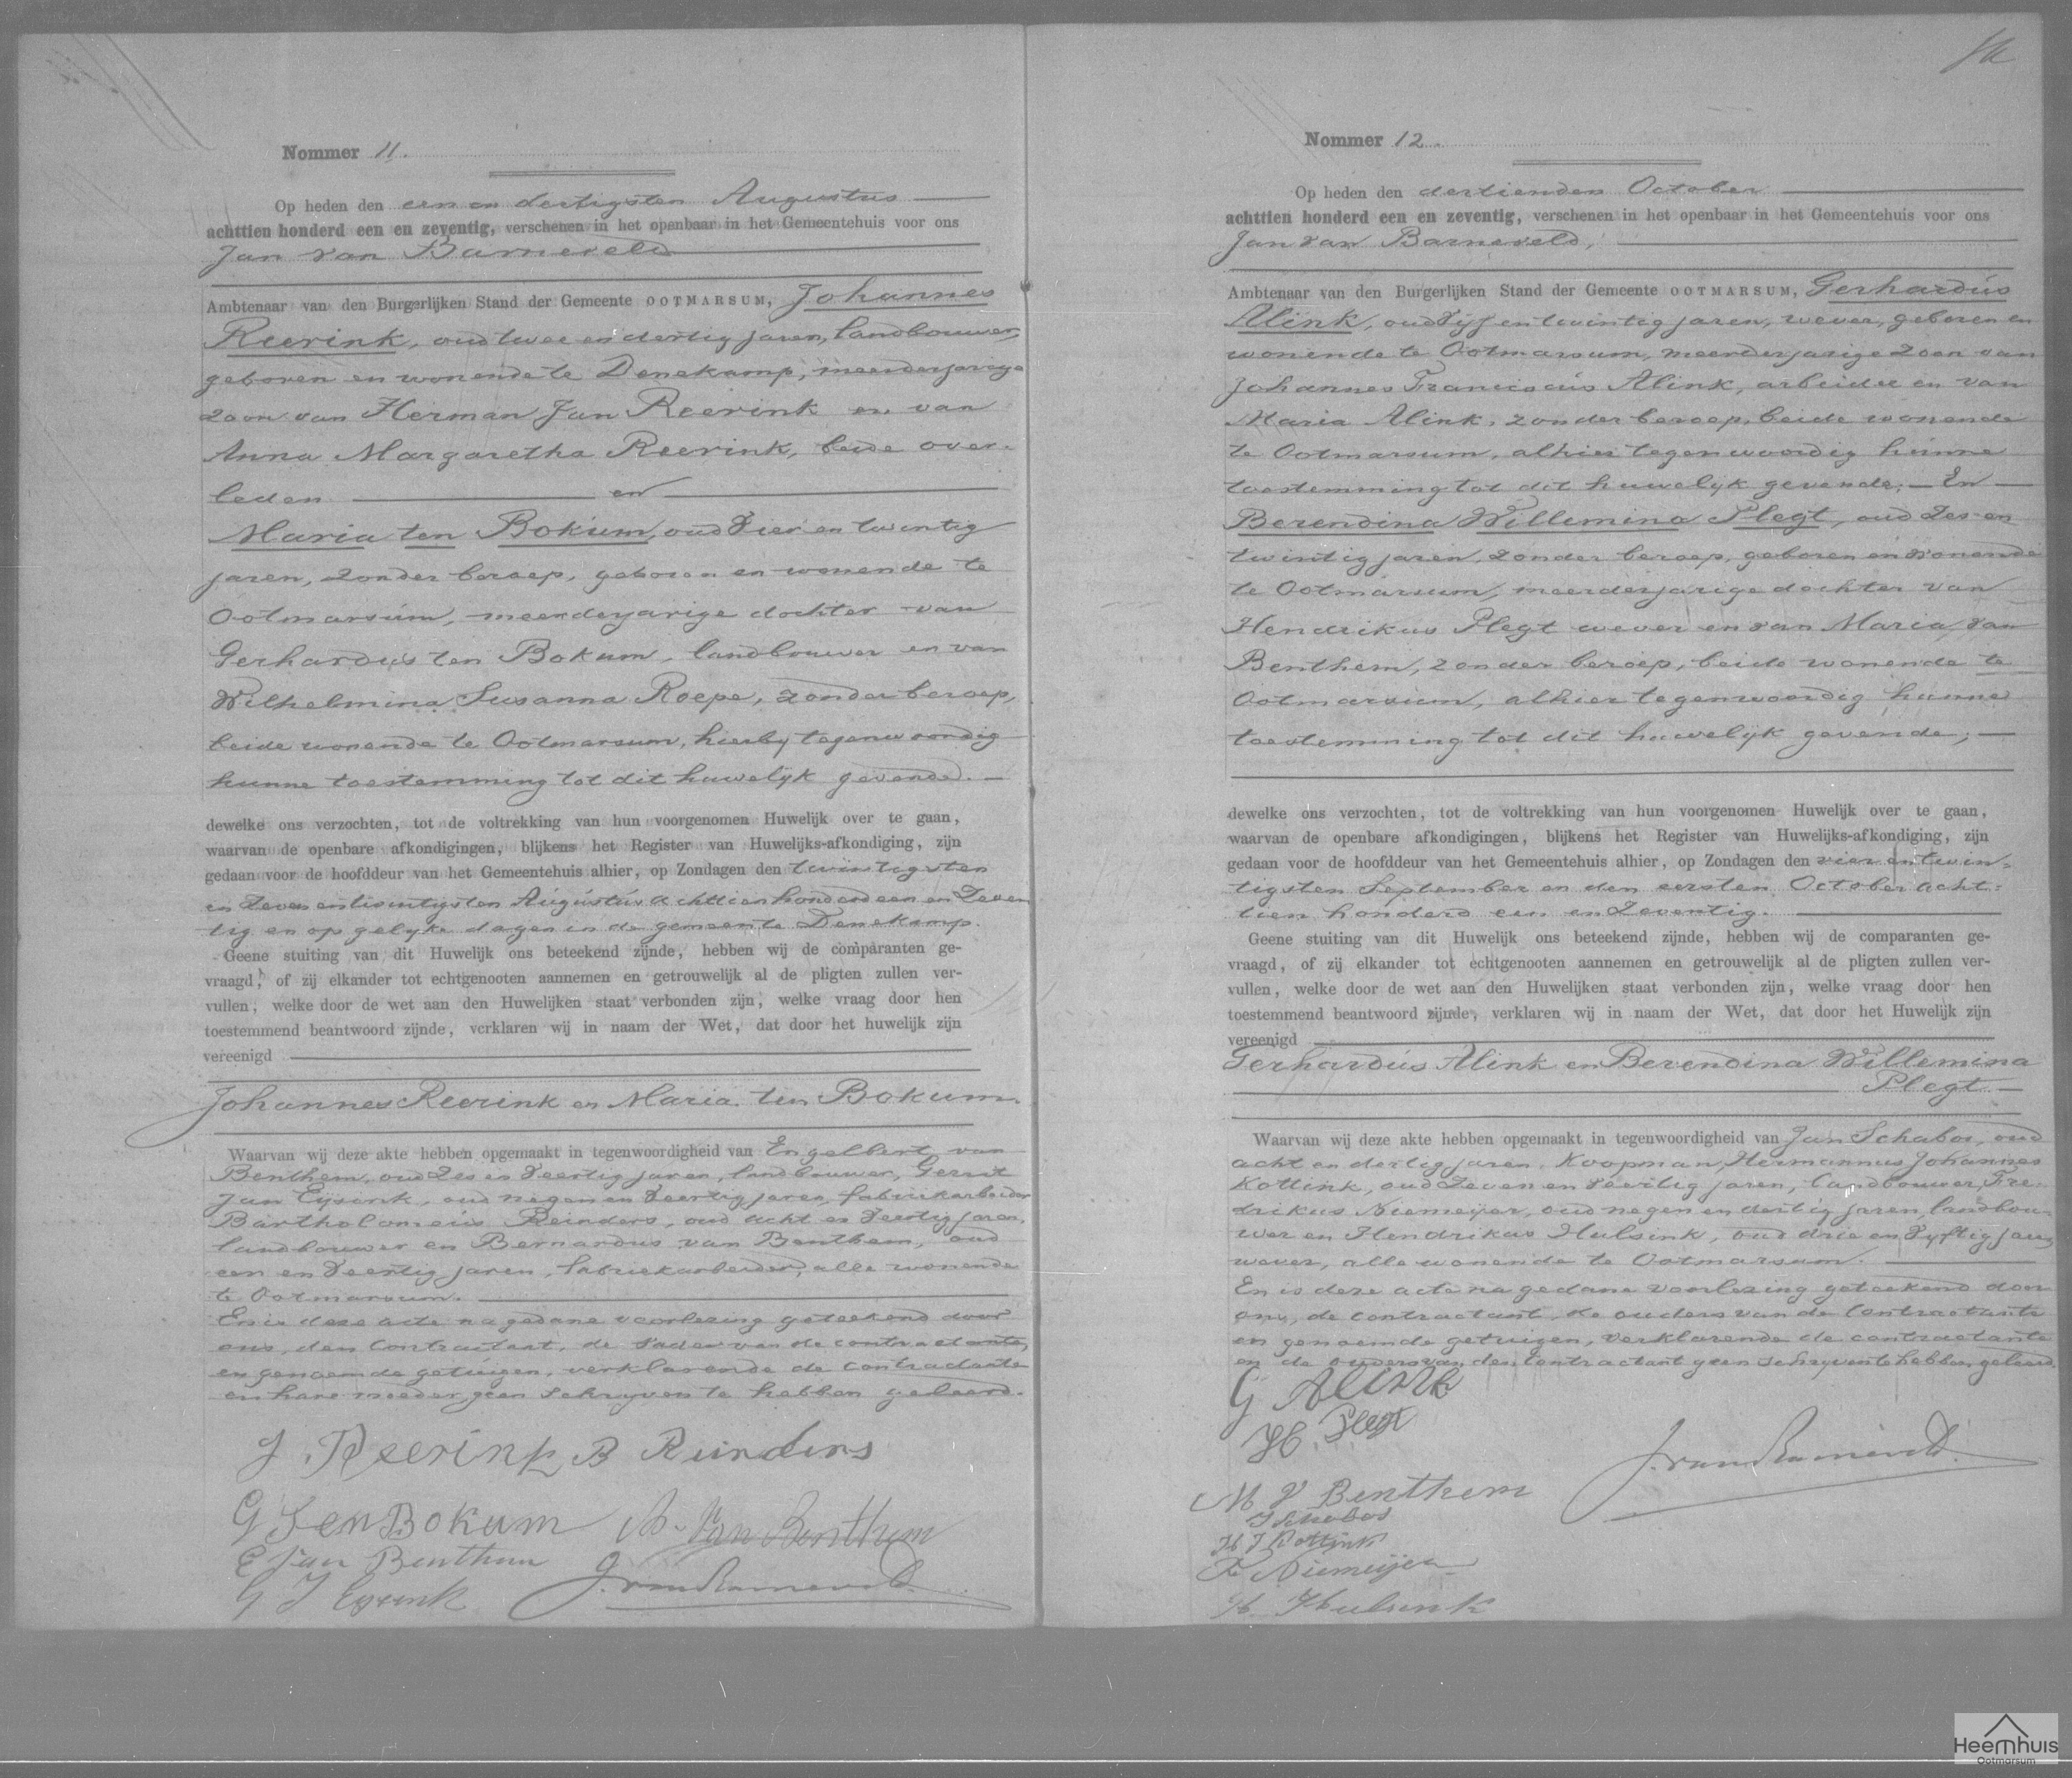 Nommer 11.
Op heden den een en dertigsten Augustus
achttien honderd een en zeventig, verschenen in het openbaar in het Gemeentehuis voor ons
Jan van Barneveld
Ambtenaar van den Burgerlijken Stand der Gemeente OOTMARSUM, Johannes
Reerink, oud twee en dertig jaren, landbouwer,
geboren en wonende te Denekamp, meerderjarige
zoon van Herman Jan Reerink en van
Anna Margaretha Reerink, beide over-
leden en
Maria ten Bokum, oud vier en twintig
jaren, zonder beroep, geboren en wonende te
Ootmarsum, meerderjarige dochter van
Gerhardus ten Bokum, landbouwer en van
Wilhelmina Susanna Roepe, zonder beroep,
beide wonende te Ootmarsum, hierby tegenwoordig
hunne toestemming tot dit huwelijk gevende.
dewelke ons verzochten, tot de voltrekking van hun voorgenomen Huwelijk over te gaan,
waarvan de openbare afkondigingen, blijkens het Register van Huwelijks-afkondiging, zijn
gedaan voor de hoofddeur van het Gemeentehuis alhier, op Zondagen den twintigsten
en zeven en twintigsten Augustus achttien honderd een en zeven
tig en op gelyke dagen in de gemeente Denekamp.
Geene stuiting van dit Huwelijk ons beteekend zijnde, hebben wij de comparanten ge-
vraagd, of zij elkander tot echtgenooten aannemen en getrouwelijk al de pligten zullen ver-
vullen, welke door de wet aan den Huwelijken staat verbonden zijn, welke vraag door hen
toestemmend beantwoord zijnde, verklaren wij in naam der Wet, dat door het huwelijk zijn
vereenigd
Johannes Reerink en Maria ten Bokum.
Waarvan wij deze akte hebben opgemaakt in tegenwoordigheid van Engelbert van
Benthem, oud zes en veertig jaren, landbouwer, Gerrit
Jan Eysink, oud negen en veertig jaren, fabriekarbeider
Bartholomeus Reinders, oud acht en veertig jaren,
landbouwer en Bernardus van Benthem, oud
een en veertig jaren, fabriekarbeider, alle wonende
te Ootmarsum.
En is deze acte na gedane voorlezing geteekend door
ons, den Contractant, de vader van de contractante,
en genoemde getuigen, verklarende de contractante
en hare moeder geen schryven te hebben geleerd.
J. Reerink B Reinders
G Ten Bokum B. Van Benthem
E van Benthem
G J Eysink J. van Barneveld
Nommer 12.
Op heden den dertienden October
achttien honderd een en zeventig, verschenen in het openbaar in het Gemeentehuis voor ons
Jan van Barneveld,
Ambtenaar van den Burgerlijken Stand der Gemeente OOTMARSUM, Gerhardus
Alink, oud vijf en twintig jaren, wever, geboren en
wonende te Ootmarsum, meerderjarige zoon van
Johannes Franciscus Alink, arbeider en van
Maria Alink, zonder beroep, beide wonende
te Ootmarsum, alhier tegenwoordig hunne
toestemming tot dit huwelijk gevende; En
Berendina Willemina Plegt, oud zes en
twintig jaren, zonder beroep, geboren en wonende
te Ootmarsum, meerderjarige dochter van
Hendrikus Plegt wever en van Maria van
Benthem, zonder beroep, beide wonende te
Ootmarsum, alhier tegenwoordig hunne
toestemming tot dit huwelijk gevende;
dewelke ons verzochten, tot de voltrekking van hun voorgenomen Huwelijk over te gaan,
waarvan de openbare afkondigingen, blijkens het Register van Huwelijks-afkondiging, zijn
gedaan voor de hoofddeur van het Gemeentehuis alhier, op Zondagen den vier en twin-
tigsten September en den eersten October acht-
tien honderd een en zeventig.
Geene stuiting van dit Huwelijk ons beteekend zijnde, hebben wij de comparanten ge-
vraagd, of zij elkander tot echtgenooten aannemen en getrouwelijk al de pligten zullen ver-
vullen, welke door de wet aan den Huwelijken staat verbonden zijn, welke vraag door hen
toestemmend beantwoord zijnde, verklaren wij in naam der Wet, dat door het Huwelijk zijn
vereenigd
Gerhardus Alink en Berendina Willemina
Plegt
Waarvan wij deze akte hebben opgemaakt in tegenwoordigheid van Jan Schabos, oud
acht en dertig jaren, Koopman, Hermannus Johannes
Kottink, oud zeven en veertig jaren, landbouwer, Fre-
drikus Niemeijer, oud negen en dertig jaren, landbou-
wer en Hendrikus Hulsink, oud drie en vyftig jaren,
wever, alle wonende te Ootmarsum.
En is deze acte na gedane voorlezing geteekend door
ons, de contractant, de ouders van de Contractante
en genoemde getuigen, verklarende de contractante
en de ouders van den Contractant geen schryven te hebben geleerd.
G Alink
H. Plegt
J. van Barneveld
M V Benthem
J Schabos
H J Kottink
F Niemeijer
H Hulsink
Heemhuis
Ootmarsum